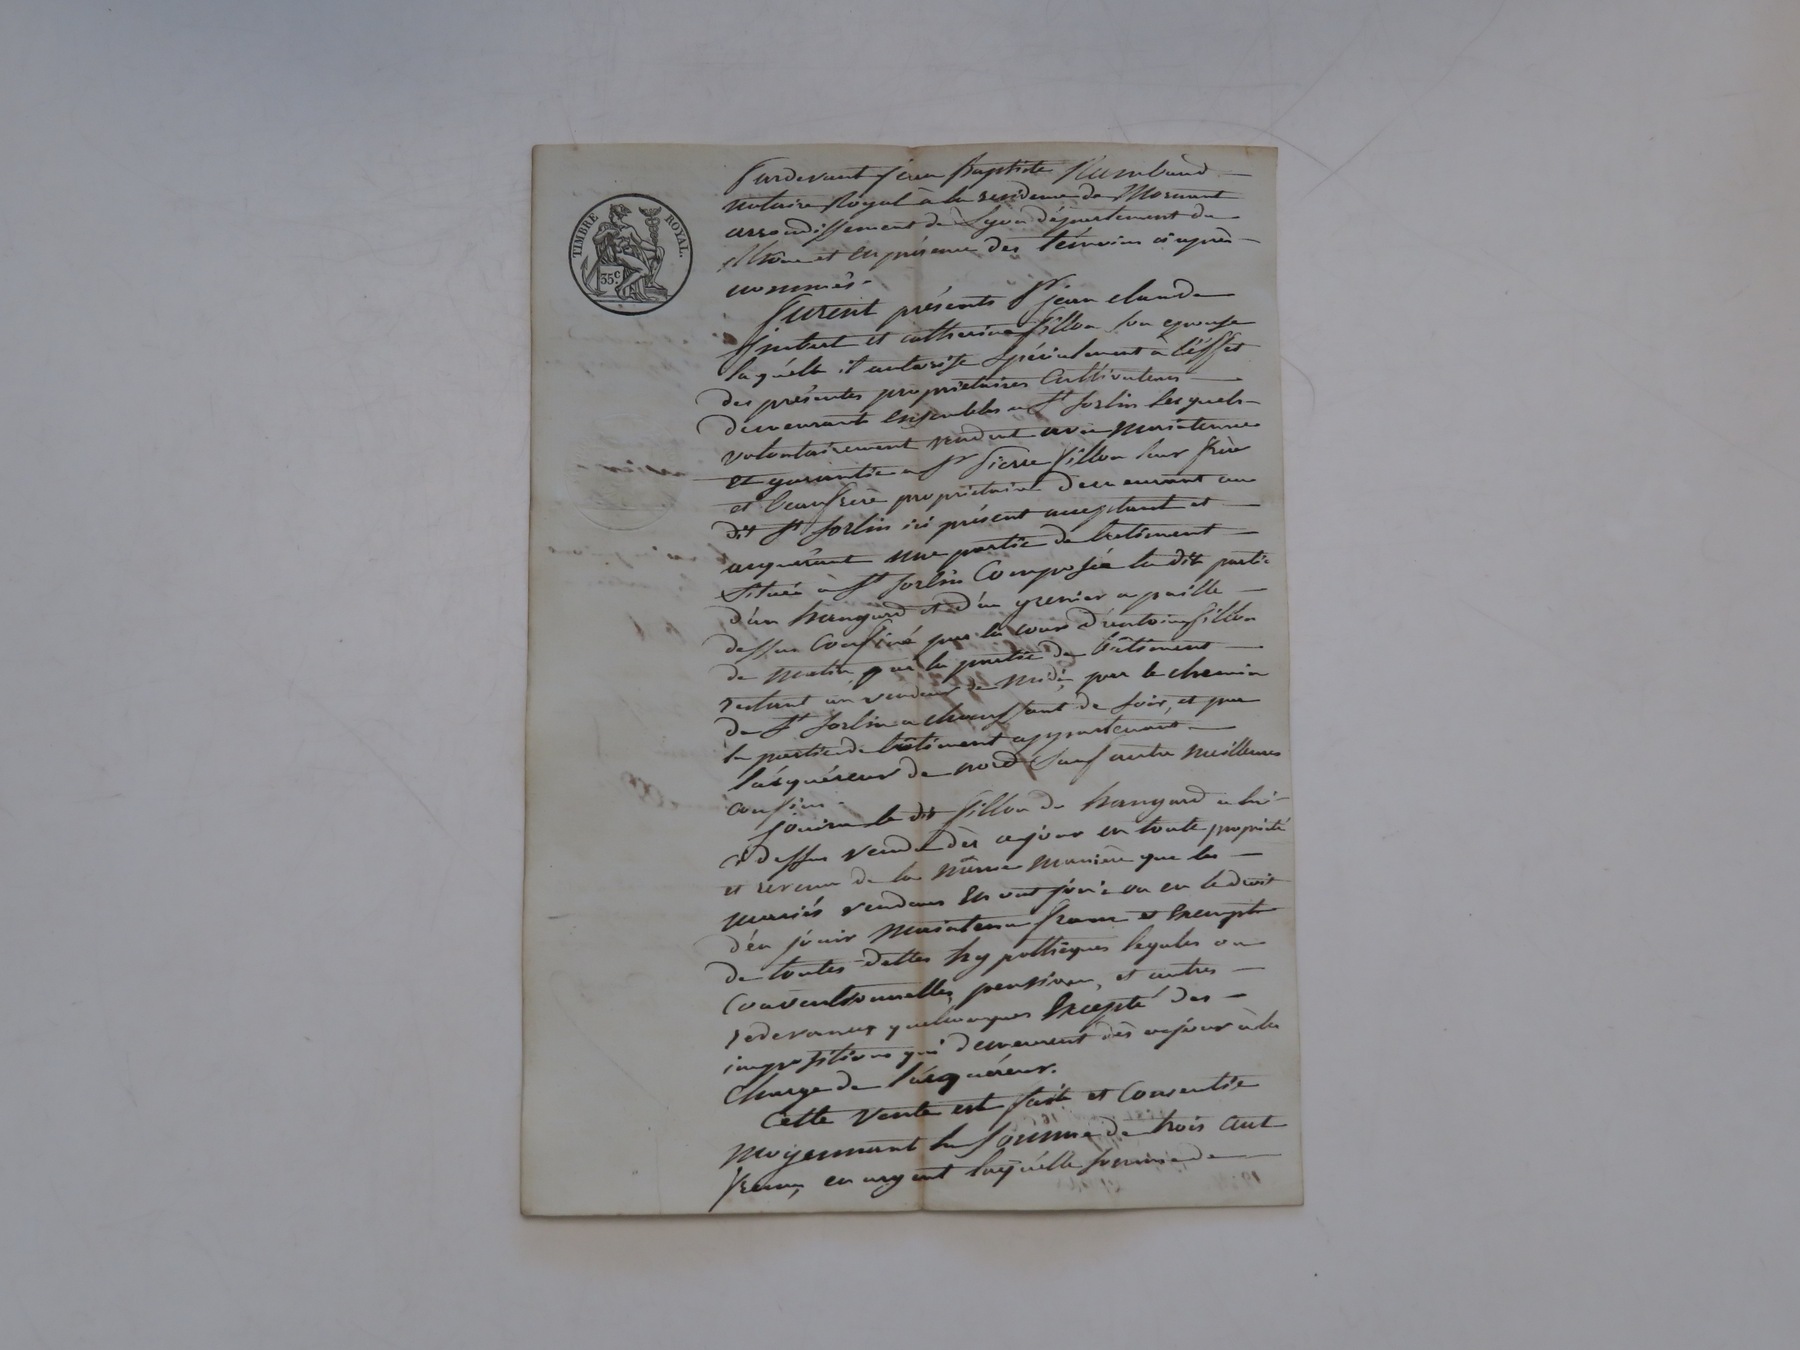 TIMBRE ROYAL.
35c
Pardevant Jean Baptiste
notaire Royal à la residence de Mornant
arrondissement de Lyon département du
Rhône et en présence des témoins ci après
nommés.
Furent présents Sr jean claude
Imbert et catherine fillon son epouse
laquelle il autorise spécialement à l'éffet
des présentes proprietaires Cultivateurs
demeurant ensembles a St Sorlin lesquels
volontairement vendent avec maintenue
et garantie a Sr Pierre fillon leur frère
et beaufrere proprietaire demeurant au
dit St Sorlin ici présent acceptant et
acquérant une partie de batiment
située à St Sorlin Composée la dite partie
d'un hangard et d'un grenier a paille
dessus Confiné par la cour d'antoine fillon
de matin, par la partie de bâtiment
restant au vendeur de midi, par le chemin
de St Sorlin a chaussant de soir, et par
la partie de bâtiment appartenant
l'acquéreur de nord sauf autre meilleurs
confins.
Jouira le dit fillon du hangard a lui
ci dessus vendu dès cejour en toute propriété
et revenu de la même manière que les
mariés vendeurs En ont joui ou eu le droit
d'en jouir maintenu franc et Exempt
de toutes dettes hypothèques legales ou
Conventionnelles, pensions, et autres
redevances quelconques Excepté des
impositions qui demeurent dès cejour à la
Charge de l'acquéreur.
Cette vente est faite et Consentie
moyennant la somme de trois Cent
francs, en argent laquelle somme de